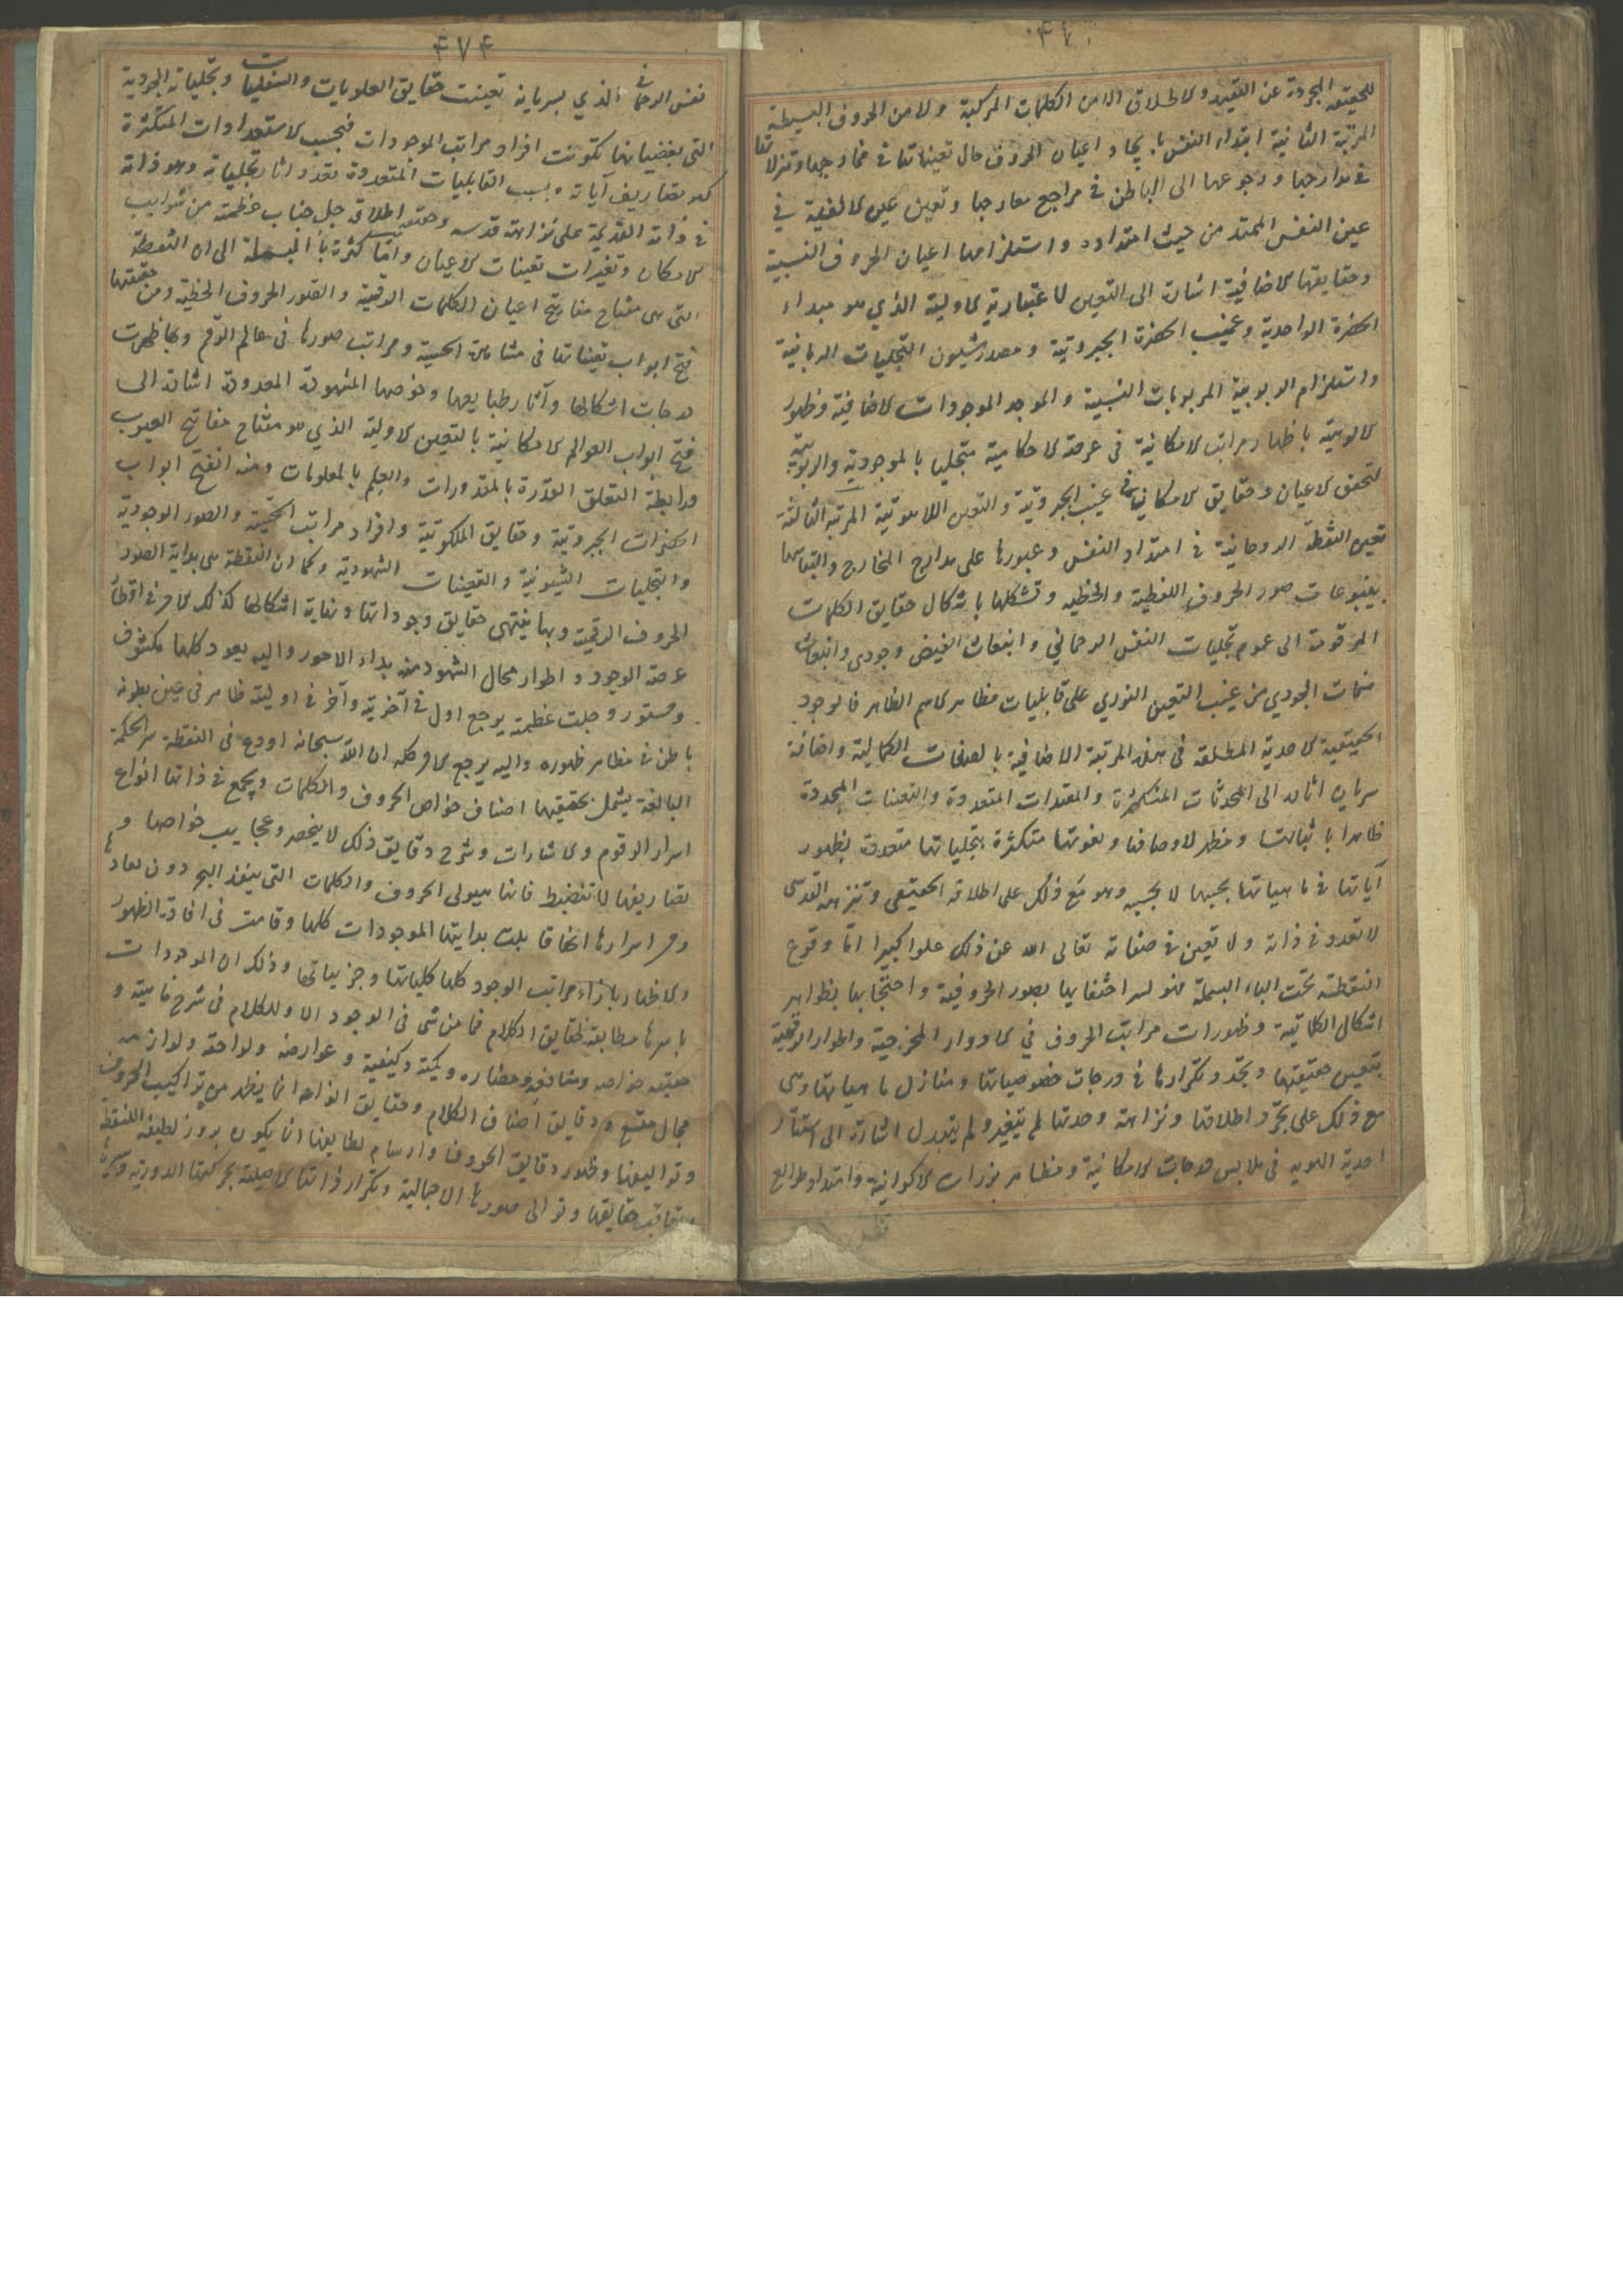 للحقيقة المجردة عن التقييد والاطلاق الا من الكلمات المركبة ولا من الحروف البسيطة
المرتبة الثانية ابتداء النفس بايجاد اعيان الحروف حال تعيناتها في مخارجها وتنزلاتها
في مدارجها ورجوعها الى الباطن في مراجع معارجها وتعين عين الالفية في
عين النفس الممتد من حيث امتداده واستلزامها اعيان الحروف النسبية
وحقايقها الاضافية اشارة الى التعين الاعتبارية الاولية الذي هو مبداء
الحضرة الواحدية وغيب الحضرة الجبروتية ومصدر شيون التجليات الربانية
واستلزام الربوبية المربوبات النسبية والموجد الموجودات الاضافية وظهور
الالوهية باظهار مراتب الامكانية في عرصة الاحكامية متجليا بالموجودية والربوبية
لتحقق الاعيان وحقايق الامكانيات في غيب الجبروتية والتعين اللاهوتية المرتبة الثالثة
تعين النقطة الروحانية في امتداد النفس وعبورها على مدارج المخارج والتباسها
بينبوعات صور الحروف اللفظية والخطية وتشكلها باشكال حقايق الكلمات
المرقومة الى عموم تجليات النفس الرحماني وانبعاث الفيض وجودي وانبعاث
نفحات الجودي من غيب التعين النوري على قابليات مظاهر الاسم الظاهر فالوجود
الحقيقية الاحدية المطلقة في هذه المرتبة الاضافية بالصفات الكمالية واضافة
سريان اثاره الى المحدثات المتكثرة والمقيدات المتعددة والتعينات المجددة
ظاهرا باثباتها ومظهر لاوصافها ونعوتها متكثرة بتجلياتها متعددة بظهور
آياتها في ماهياتها بحسبها لا بحسبه وهو مع ذلك على اطلاقه الحقيقي وتنزهه القدسي
لا تعدد في ذاته ولا تعين في صفاته تعالى الله عن ذلك علوا كبيرا اما وقوع
النقطة تحت الباء البسملة فهو لسر اختفايها بصور الحرفية واحتجابها بظواهر
اشكال الكلماتية وظهورات مراتب الحروف في الادوار المخرجية واطوار الرقمية
بتعين حقيقتها وتجدد تكرارها في درجات خصوصياتها ومنازل ماهياتها وهي
مع ذلك على تجرد اطلاقها ونزاهة وحدتها لم يتغير ولم يتبدل اشارة الى استتار
احدية الهوية في ملابس درجات الامكانية ومظاهر بزرات الاكوانية وامتداد طوالع
۴۷۴
نفس الرحماني الذي بسريانه تعينت حقايق العلويات والسفليات وتجلياته الجودية
التي بفيضانها تكونت افراد مراتب الموجودات فبحسب الاستعدادات المتكثرة
تصاريف آياته وبسبب القابليات المتعددة تعدد اثار تجلياته وهو ذاته
في ذاته القديمة على نزاهة قدسه وحقيقت اطلاقه جل جناب عظمته من شوايب
الامكان وتغيرات تعينات الاعيان واما كثرة باء البسملة الى ان النقطة
التي هي مفتاح مفاتيح اعيان الكلمات الرقمية والصور الحروف الخطية ومن حقيقتها
فتح ابواب تعيناتها في مشاهد الحسية ومراتب صورها في عالم الرقم وبها ظهرت
درجات اشكالها وآثار طبايعها وخوصها المشهودة المعدودة اشارة الى
فتح ابواب العوالم الامكانية بالتعين الاولية الذي هو مفتاح مفاتيح الغيوب
ورابطة التعلق القدرة بالمقدورات والعلم بالمعلومات ومنه انفتح ابواب
الحضرات الجبروتية وحقايق الملكوتية وافراد مراتب الحسية والصور الوجودية
والتجليات الشيونية والتعينات الشهودية وكما ان النقطة هي بداية الصور
الحروف الرقمية وبها ينتهي حقايق وجوداتها ونهاية اشكالها كذلك الامر في اقطار
عرصة الوجود واطوار مجال الشهود منه بداء الامور واليه يعود كلها مكشوف
ومستور وجلت عظمته يرجع اول في آخريته وآخر في اوليته ظاهر في عين بطونه
باطن في مظاهر ظهوره واليه يرجع الامر كله ان الله سبحانه اودع في النقطة سر الحكمة
البالغة يشمل بحقيقتها اصناف خواص الحروف والكلمات ويجمع في ذاتها انواع
اسرار الرقوم والاشارات وشرح دقايق ذلك لا ينحصر وعجايب خواصها و
تصاريفها لا تنضبط فانها هيولى الحروف والكلمات التي ينفذ البحر دون نفادها
ومر اسرارها اتفاقا بلت بدايتها الموجودات كلها وقامت في افادة الظهور
والاظهار بازاء مراتب الوجود كلها كلياتها وجزئياتها وذلك ان الموجودات
باسرها مطابقة لحقايق الكلام فما من شئ في الوجود الا وللكلام في شرح ماهيته و
حقيقته خواصه ومنافعه ومضاره وكميته وكيفية وعوارضه ولواحقه ولوازمه
مجال متسع ودقايق اصناف الكلام وحقايق انواعه انما يظهر من تراكيب الحروف
وتواليفها وظهور دقايق الحروف وارسام لطايفها انما يكون بروز لطيفة النقطة
وتعاقب حقايقها وتوالى صورها الاجمالية وتكرار ذاتها الاصلية بحركتها الدورية